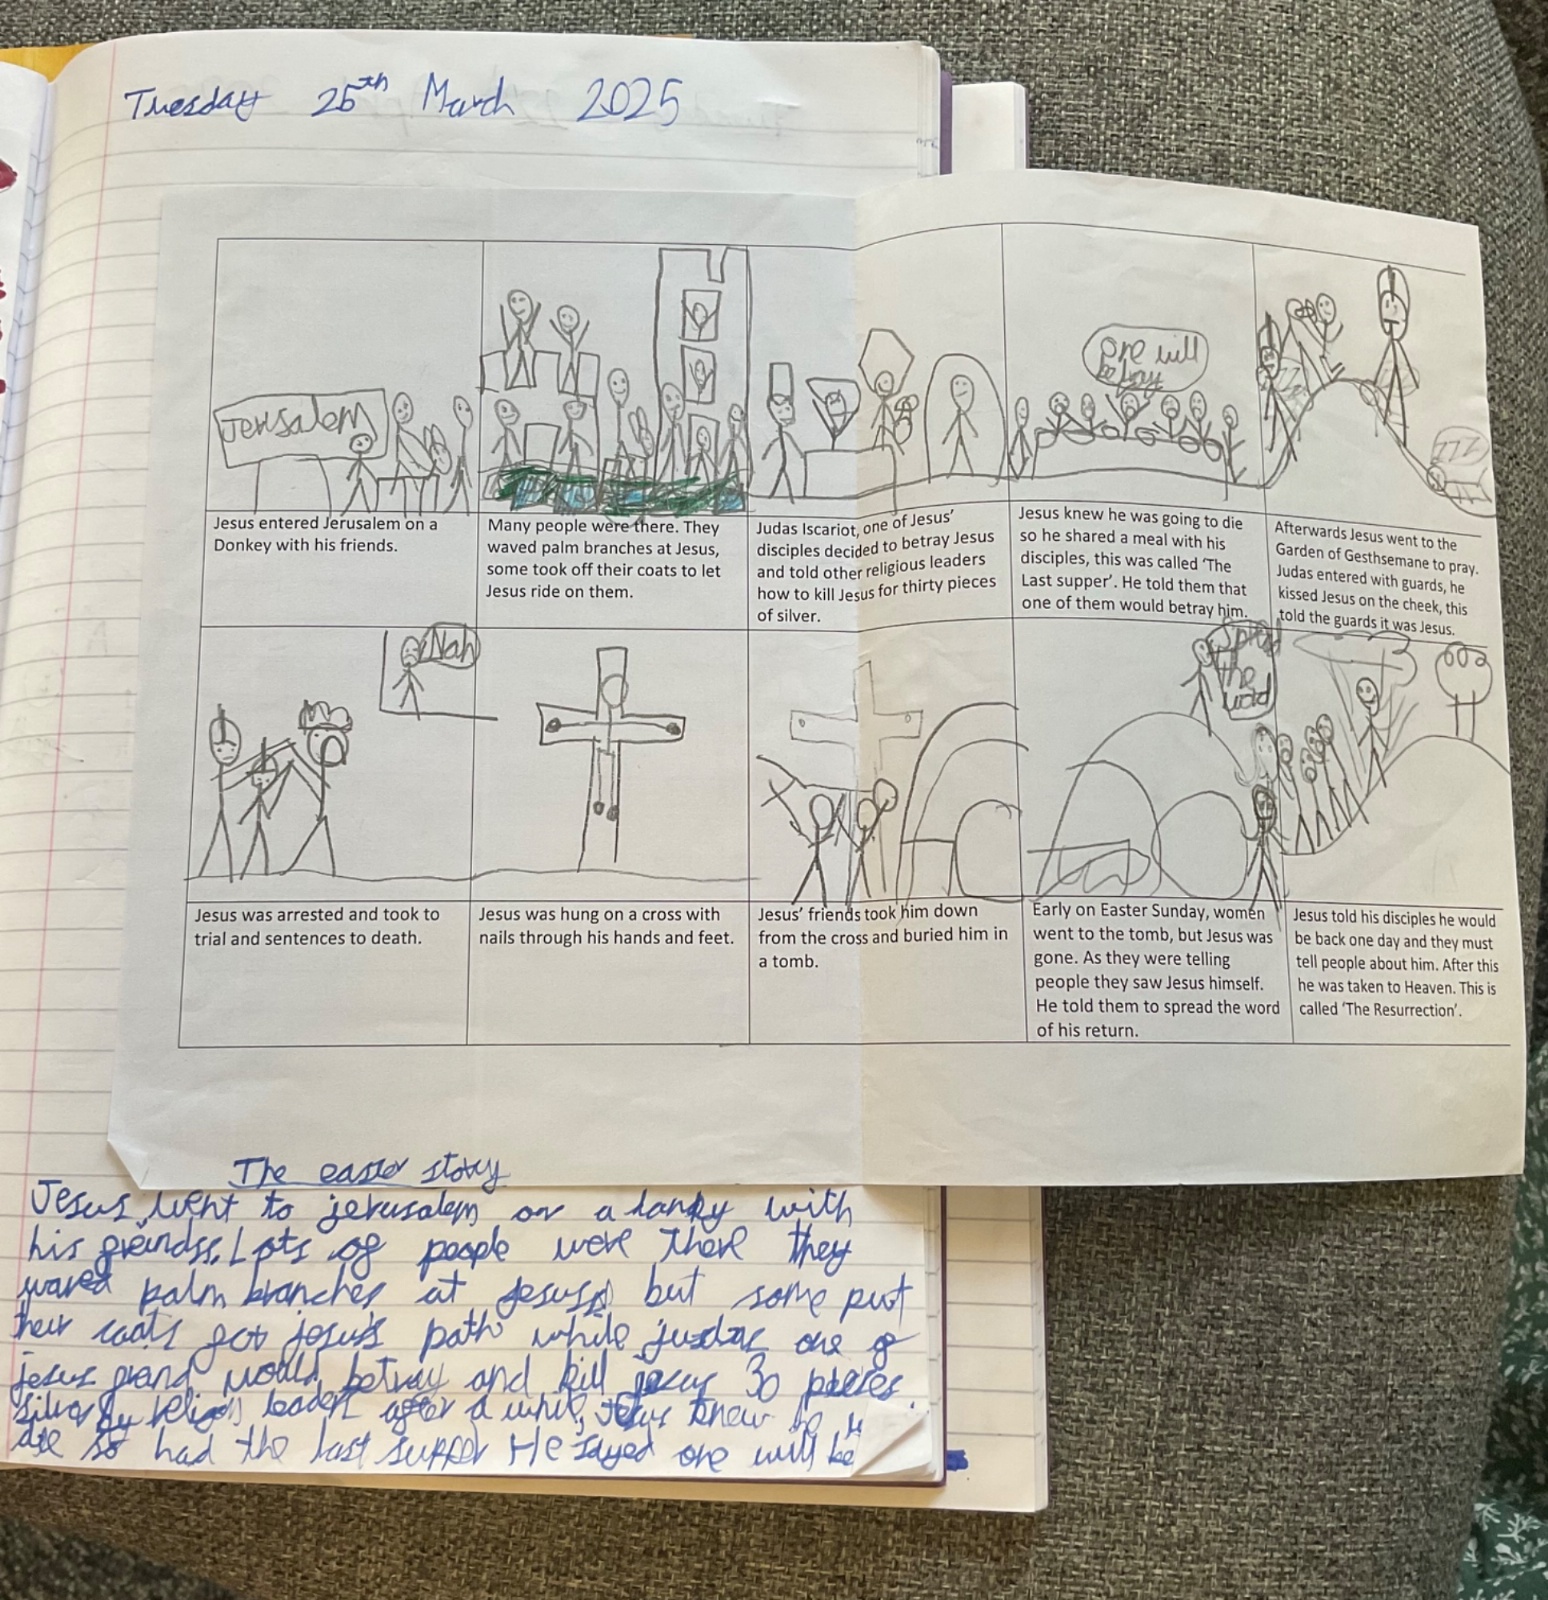 Tuesday 25th March 2025
Jerusalem
one will
betray
Jesus entered Jerusalem on a
Donkey with his friends.
Many people were there. They
waved palm branches at Jesus,
some took off their coats to let
Jesus ride on them.
Judas Iscariot, one of Jesus'
disciples decided to betray Jesus
and told other religious leaders
how to kill Jesus for thirty pieces
of silver.
Jesus knew he was going to die
so he shared a meal with his
disciples, this was called 'The
Last supper'. He told them that
one of them would betray him.
zzz
Afterwards Jesus went to the
Garden of Gesthsemane to pray.
Judas entered with guards, he
kissed Jesus on the cheek, this
told the guards it was Jesus.
Nah
Jesus was arrested and took to
trial and sentences to death.
Jesus was hung on a cross with
nails through his hands and feet.
Jesus' friends took him down
from the cross and buried him in
a tomb.
the
Early on Easter Sunday, women
went to the tomb, but Jesus was
gone. As they were telling
people they saw Jesus himself.
He told them to spread the word
of his return.
Jesus told his disciples he would
be back one day and they must
tell people about him. After this
he was taken to Heaven. This is
called 'The Resurrection'.
The easter story
Jesus went to jerusalem on a with
his Lots of people were there they
waved palm branches at Jesus but some put
their coats for jesus's path while judas one of
jesus would betray and kill jesus 30 pieces
silver by leaders after a while, Jesus knew he
die so had the last supper He sayed one will be